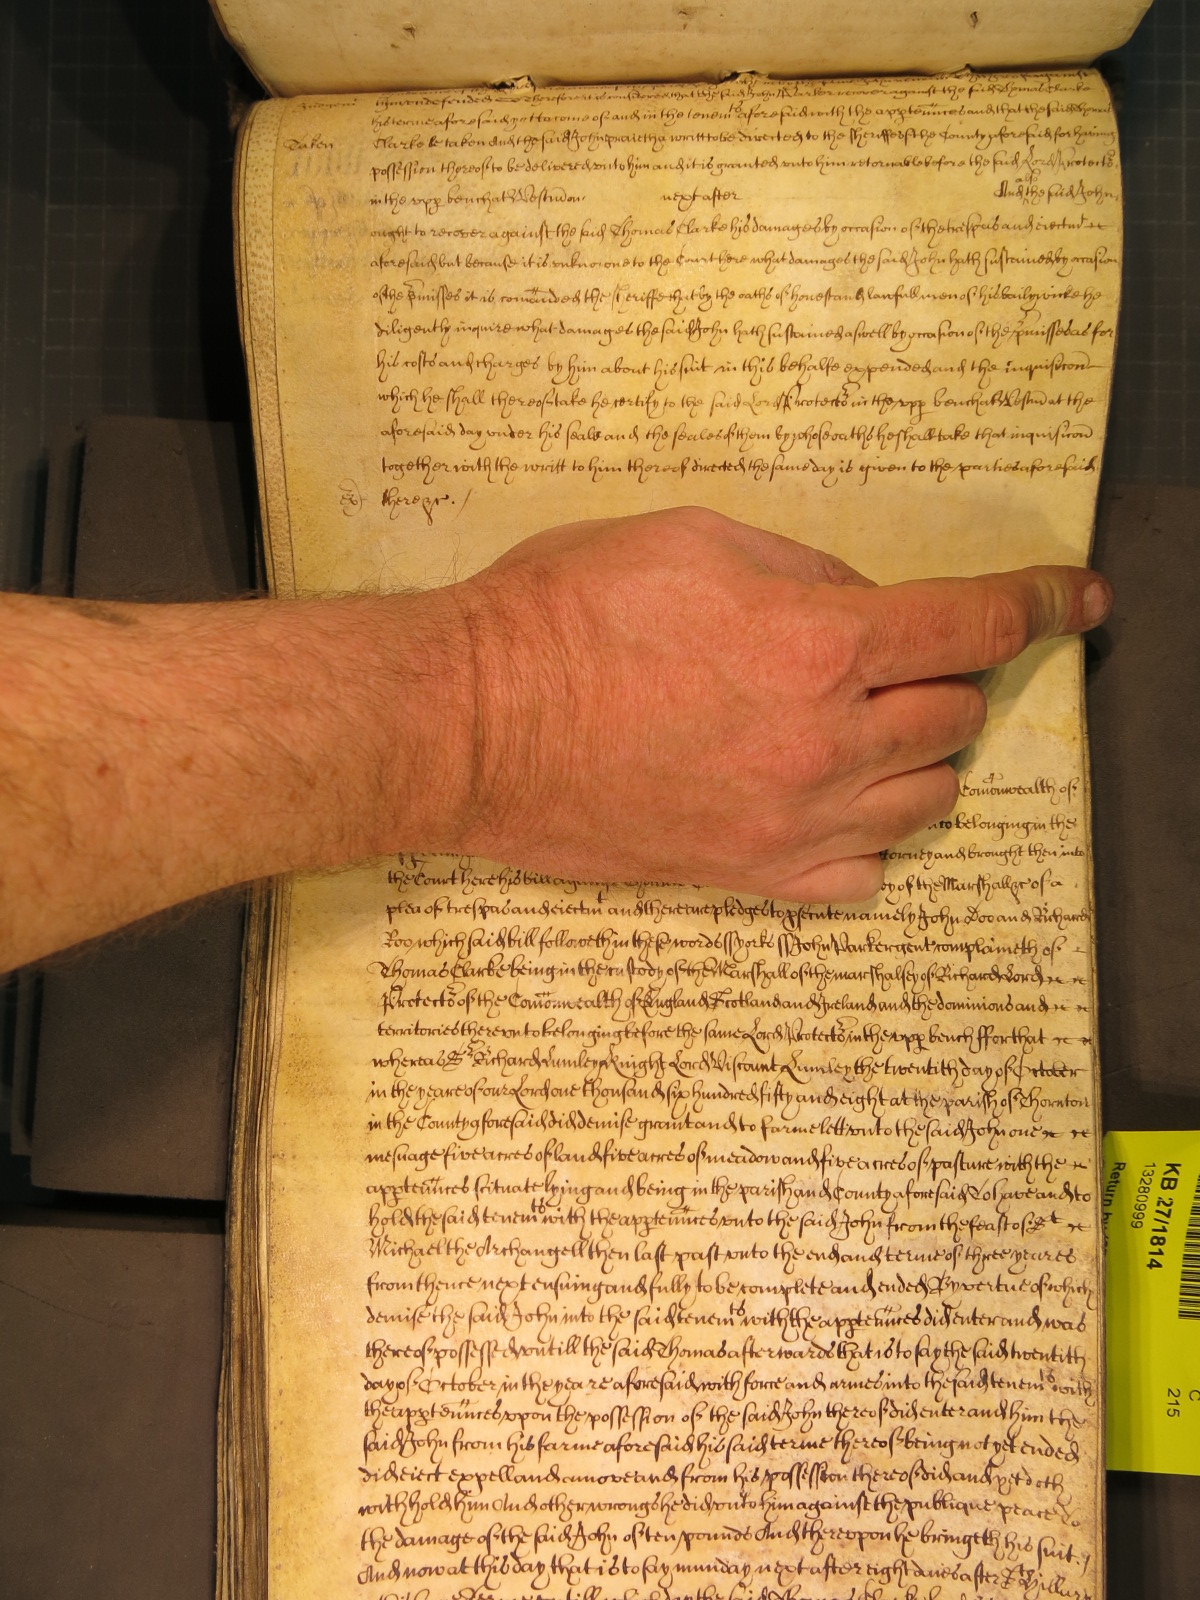 thereon defended &c Therefore it is considered that the said John Parker recover against the said Thomas Clarke
his terme aforesaid yett to come of and in the tenemts aforesaid with the appten̄nces and that the said Thomas
Taken Clarke be taken and the said John prayeth a writt to be directed to the Sheriffe of the County aforesaid for haveing
possession thereof to be delivered unto him and it is granted unto him retornable before the said Lord Protector
in the upp bench at Westm̄ on next after And alsoe the said John
ought to recover against the said Thomas Clarke his damages by occasion of the trespas and eiectmt
aforesaid but because it is unknowne to the Court here what damages the said John hath sustained by occasion
of the p̄misses it is com̄anded the sheriffe that by the oaths of honest and lawfull men of his bailywicke he
diligently inquire what damages the said John hath sustained aswell by occasion of the p̄misses as for
his costs and charges by him about his suit in this behalfe expended and the inquisic̄on
which he shall thereof take he certify to the said Lord Protector in the upp bench at Westm̄ at the
aforesaid day under his seale and the seales of them by whose oaths he shall take that inquisic̄on
together with the writt to him thereof directed the same day is given to the parties aforesaid
ex) there &c. /
Com̄onwealth of
to belonging in the
torney and brought then into
the Court here his bill against Thomas dy of the Marshall &c of a
plea of trespas and eiectmt and there are pledges to psecute namely John Doo and Richard
Roo which said bill followeth in these words ss Yorks ss John Parker gent complaineth of
Thomas Clarke being in the custody of the Marshall of the marshalsey of Richard Lord
Protector of the Com̄onwealth of England Scotland and Ireland and the dominions and
territories thereunto belonging before the same Lord Protector in the upp bench ffor that
whereas Sr Richard Lumley Knight Lord Viscount Lumley the twentith day of October
in the yeare of our Lord one thousand six hundred fifty and eight at the parish of Thornton
in the County aforesaid did demise grant and to farme lett unto the said John one
mesuage five acres of land five acres of meadow and five acres of pasture with the
appten̄nces scituate lying and being in the parish and County aforesaid To have and to
hold the said tenemts with the appten̄nces unto the said John from the feast of St
Michael the Archangell then last past unto the end and terme of three yeares
from thence next ensuing and fully to be complete and ended By vertue of which
demise the said John into the said tenemts with the appten̄nces did enter and was
thereof possessed untill the said Thomas afterwards that is to say the said twentith
day of October in the yeare aforesaid with force and armes into the said tenemts with
the appten̄nces upon the possession of the said John thereof did enter and him the
said John from his farme aforesaid his said terme thereof being not yet ended
did eiect expell and amove and from his possession thereof did and yet doth
withhold him And other wrongs he did unto him against the publique peace To
the damage of the said John of ten pounds And thereupon he bringeth his suit. /
And now at this day that is to say munday next after eight daies after St Hillary
KB 27/1814
13280999
C
215